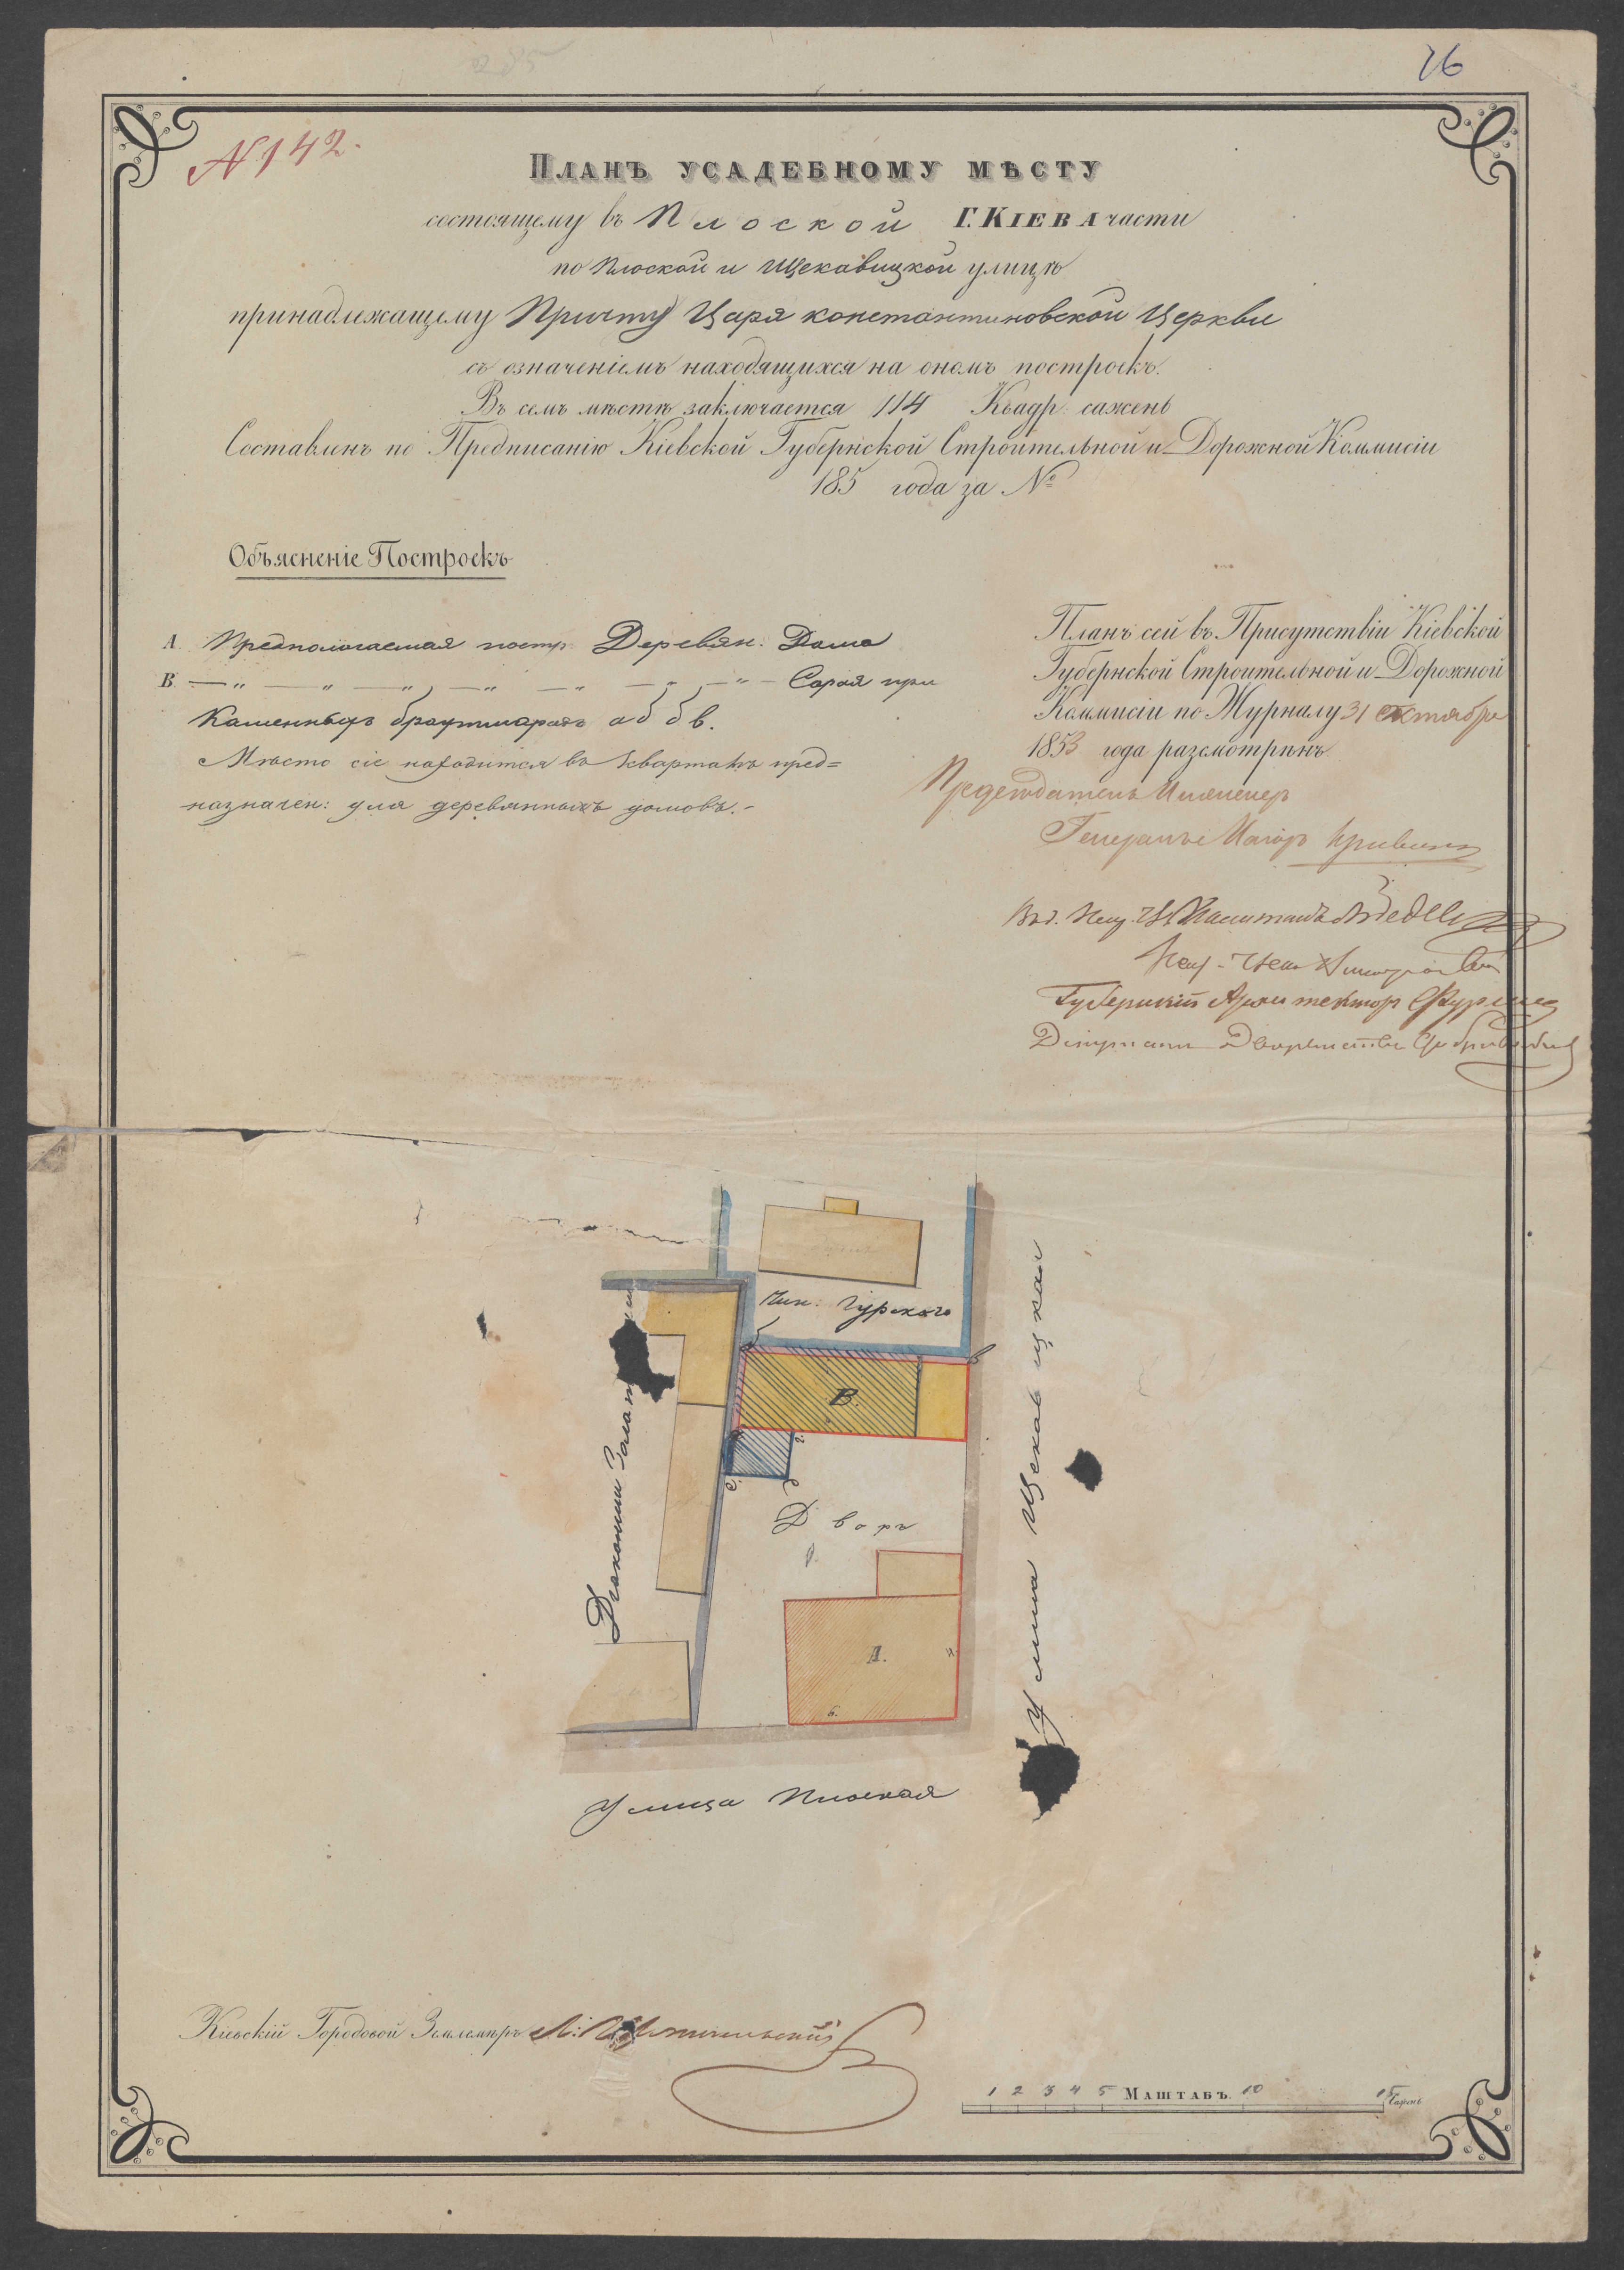 76
N 142.
Планъ усадебному мѣсту
состоящему въ Плоской Г. Кіева части
по Плоской и Щекавицкой улицѣ
принадлежащему Причту Царя константиновской Церкви
съ означеніемъ находящихся на ономъ построекъ.
Въ семъ мѣстѣ заключается 114 Квадр: сажень
Составленъ по Предписанію Кіевской Губернской Строительной и Дорожной Коммисіи
185 года за №
Объясненіе Построекъ
A. Предполагаемая постр. Деревян: Дома
B. — „ — „ — „ — „ — „ — „ — „ — Сарая при
Каменныхъ брантмарахъ а б б в.
Мѣсто сіе находится въ кварталѣ пред=
назначен: для деревянныхъ домовъ.-
Планъ сей въ Присутствіи Кіевской
Губернской Строительной и Дорожной
Коммисіи по Журналу 31 октября
1853 года разсмотрѣнъ
Председатель Инженер
Генералъ Маіоръ
Капитанъ
Губернскій Архитекторъ
Депутатъ Дворянства
Чин: Гурскаго
B.
в
Дьяконши
Дворъ
A.
б.
Улица Щекавицкая
Улица Плоская
Кіевскій Городовой Землемѣръ
1 2 3 4 5 Маштабъ. 10 15 Сажень